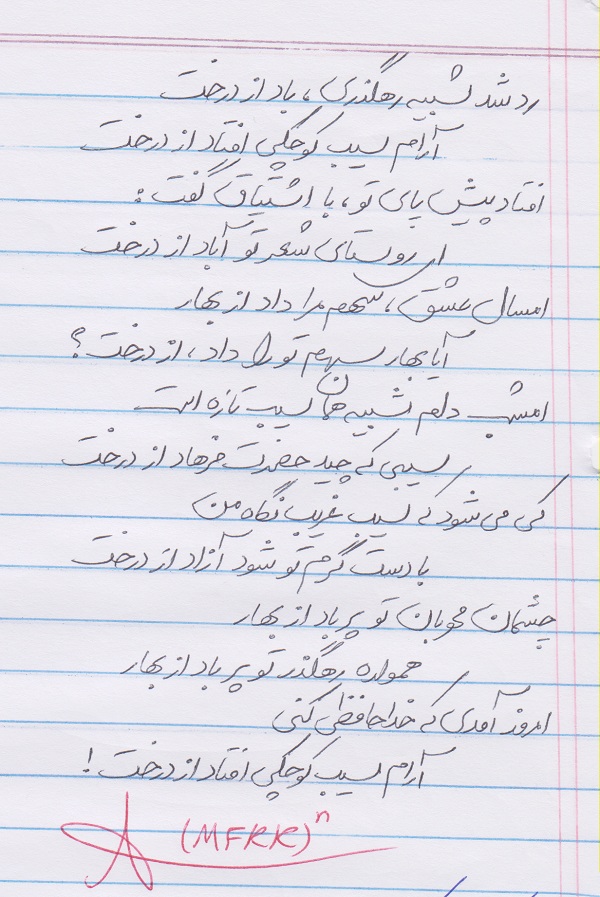 رد شد شبیه رهگذری، باد از درخت
آرام سیب کوچکی افتاد از درخت
افتاد پیش پای تو، با اشتیاق گفت:
ای روستای شعر تو آباد از درخت
امسال عشق، سهم مرا داد از بهار
آیا بهار سهم تو را داد، از درخت؟
امشب دلم شبیه همان سیب تازه است
سیبی که چید حضرت فرهاد از درخت
کی می شود که سیب غریب نگاه من
با دست گرم تو شود آزاد از درخت
چشمان مهربان تو پر باد از بهار
همواره رهگذر تو پر باد از بهار
امروز آمدی که خداحافظی کنی
آرام سیب کوچکی افتاد از درخت!
(MFKK)ⁿ